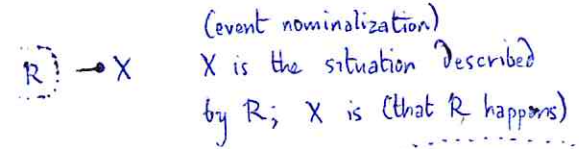 (event nominalization)
R → X X is the situation described
by R; X is (that R happens)